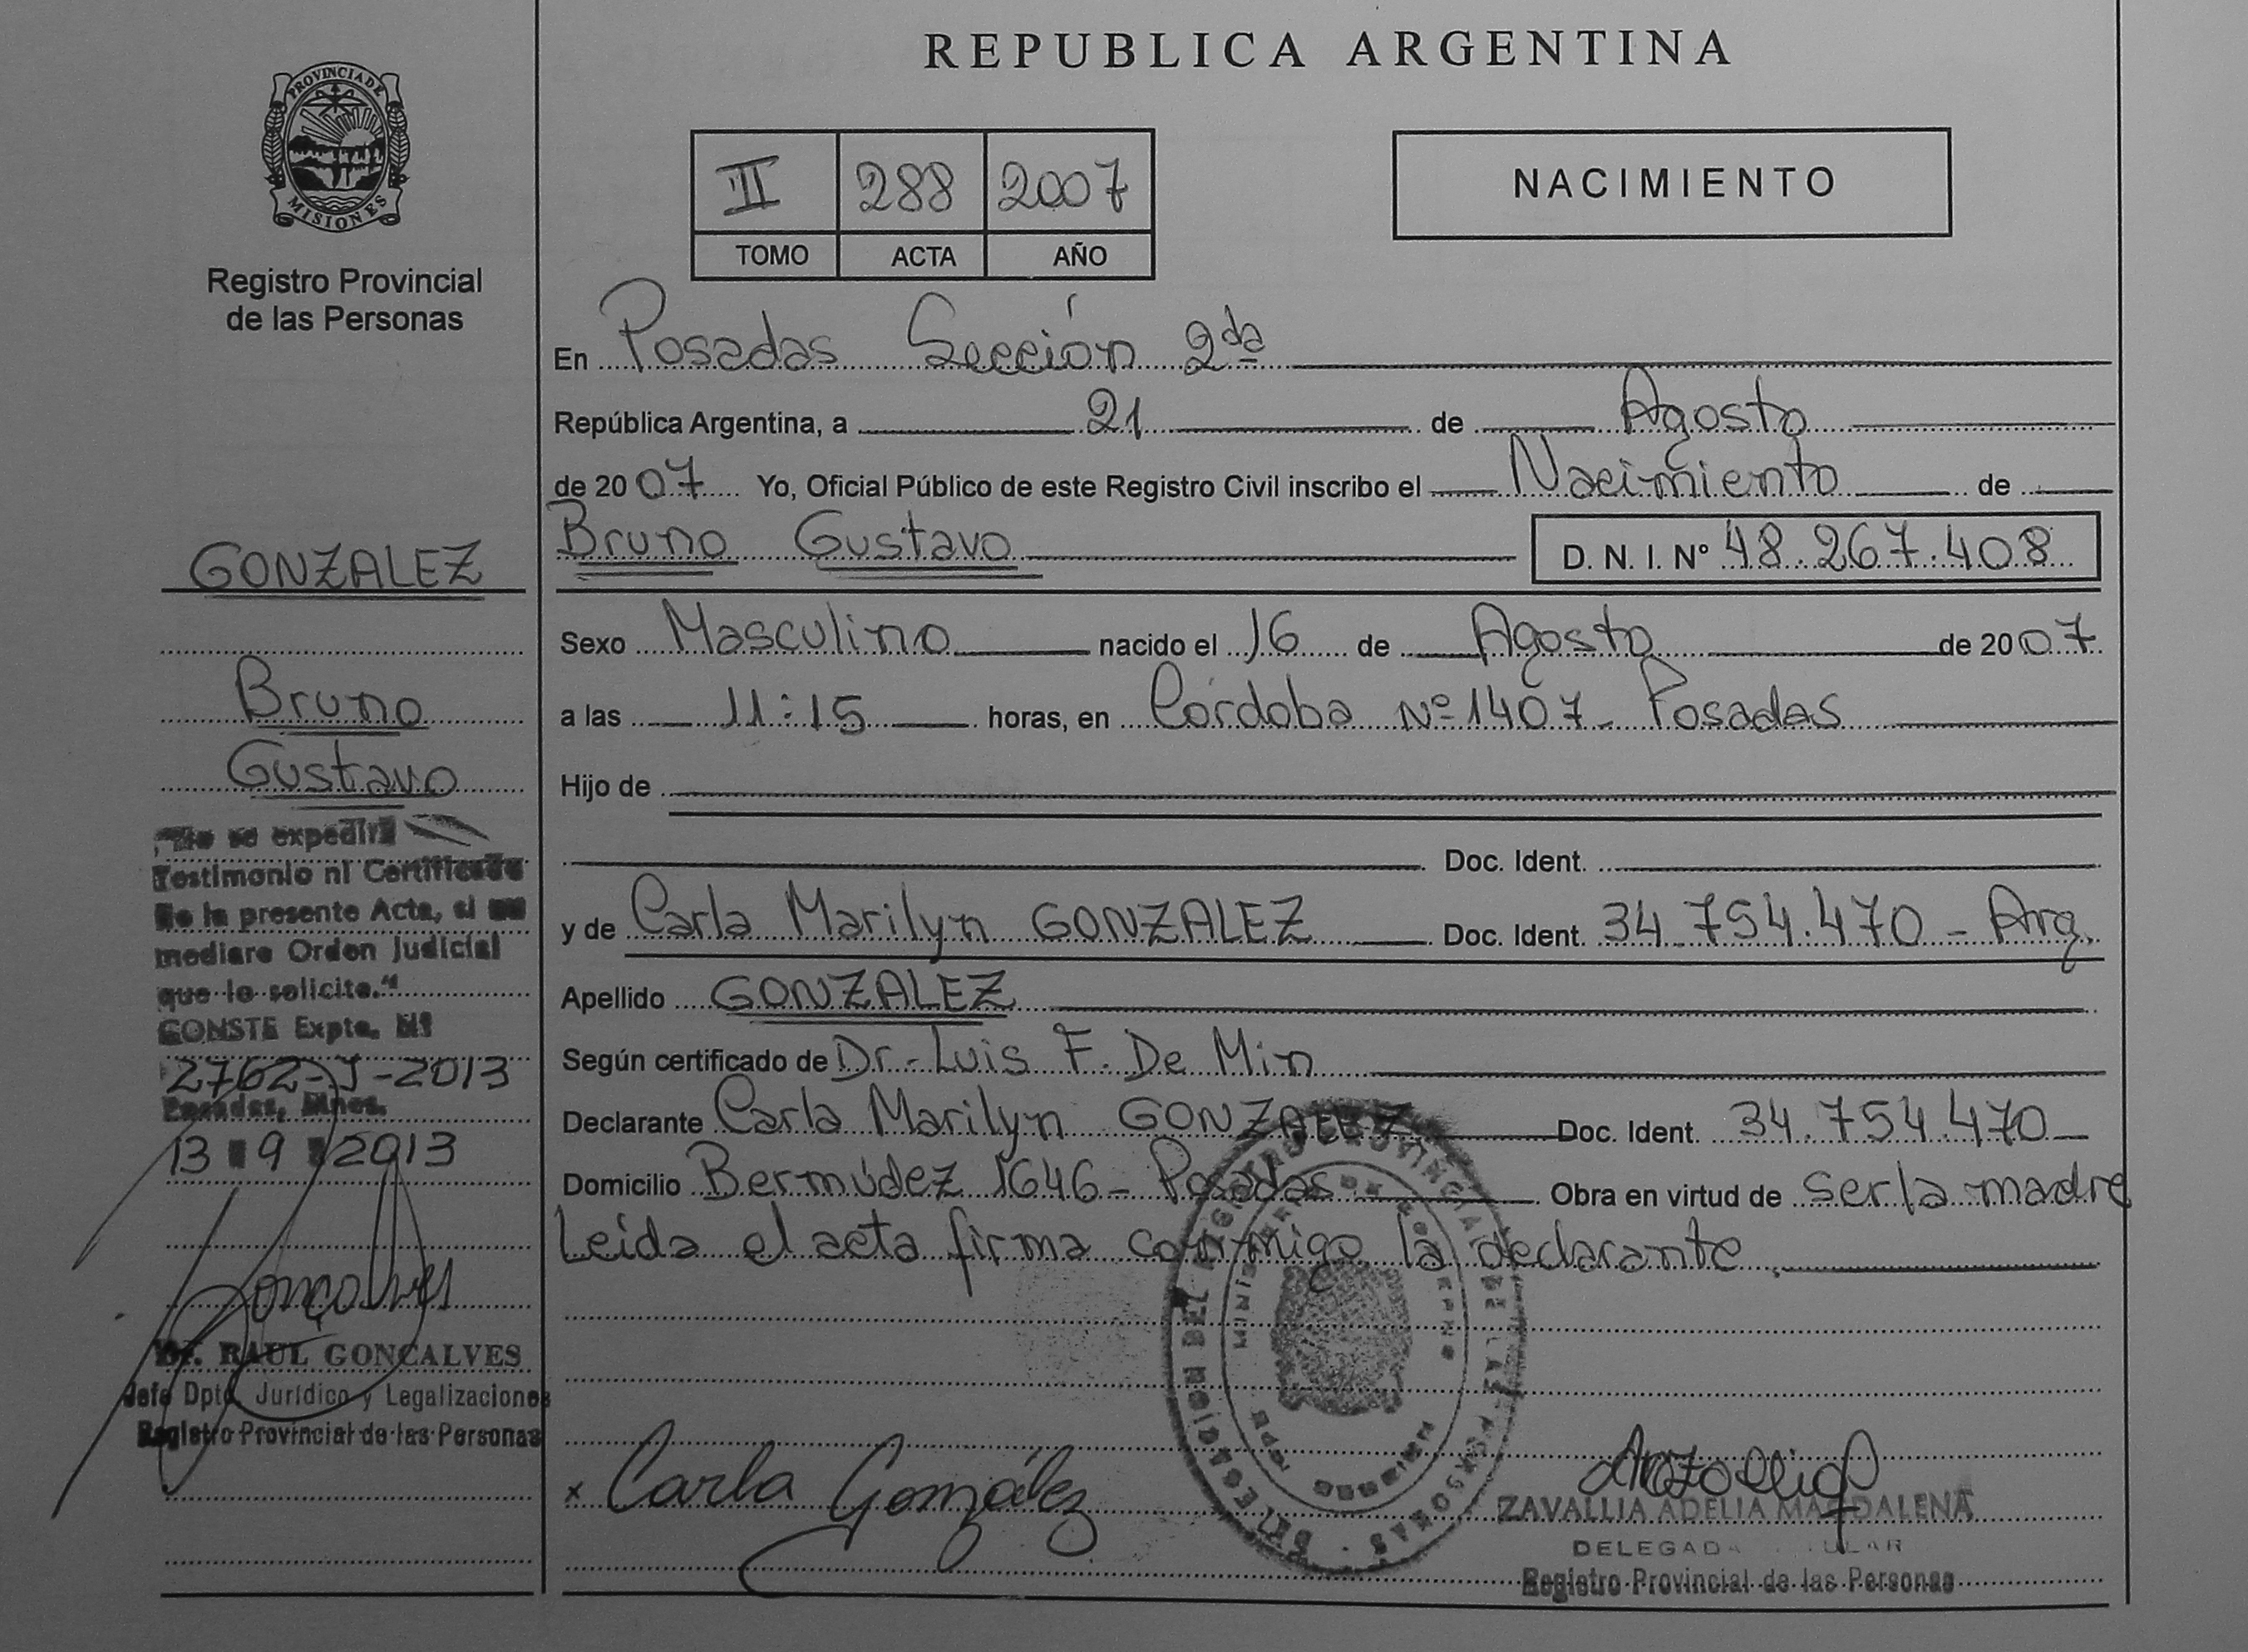 REPUBLICA ARGENTINA
PROVINCIA DE
MISIONES
Registro Provincial
de las Personas
II 288 2007
TOMO ACTA AÑO
NACIMIENTO
En Posadas Sección 2da
República Argentina, a 21 de Agosto
de 2007 Yo, Oficial Público de este Registro Civil inscribo el Nacimiento de
Bruno Gustavo D. N. I. Nº 48.267.408
Sexo Masculino nacido el 16 de Agosto de 2007
a las 11:15 horas, en Córdoba Nº 1407 - Posadas
Hijo de
Doc. Ident.
y de Carla Marilyn GONZALEZ Doc. Ident. 34.754.470 - Arg.
Apellido GONZALEZ
Según certificado de Dr.- Luis F. De Min
Declarante Carla Marilyn GONZALEZ Doc. Ident. 34.754.470
Domicilio Bermúdez 1646 - Posadas Obra en virtud de ser la madre
Leida el acta firma conmigo la declarante
x Carla González
ZAVALLIA ADELIA MAGDALENA
Registro Provincial de las Personas
GONZALEZ
Bruno
Gustavo
"No se expedirá
Testimonio ni Certificado
de la presente Acta, si no
mediare Orden Judicial
que lo solicite."
CONSTE Expte. Nº
2762-J-2013
Posadas, Mnes.
13 9 2013
Goncalves
Dr. RAUL GONCALVES
Jefe Dpto. Jurídico y Legalizaciones
Registro Provincial de las Personas